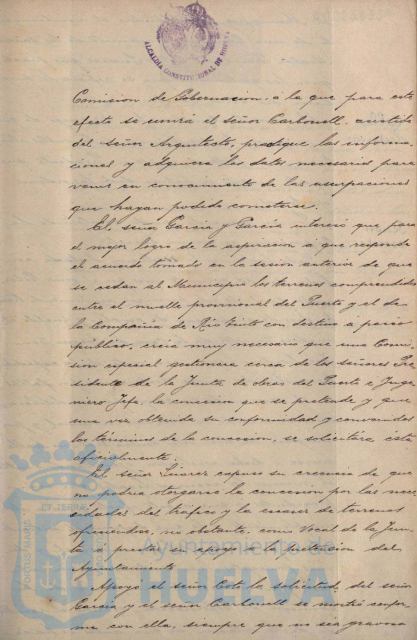 ALCALDIA CONSTITUCIONAL DE HUELVA
Comision de Gobernacion, á la que para este
efecto se unirá el señor Carbonell, asistido
del señor Arquitecto, practique las informa-
ciones y adquiera los datos necesarios para
venir en conocimiento de las usurpaciones
que hayan podido cometerse.
El señor Garcia y Garcia interesó que para
el mejor logro de la aspiracion á que responde
el acuerdo tomado en la sesion anterior de que
se cedan al Municipio los terrenos comprendidos
entre el muelle provisional del Puerto y el de
la Compañia de Rio Tinto con destino á paseo
público, creia muy necesario que una Comi-
sion especial gestionara cerca de los señores Pre-
sidente de la Junta de obras del Puerto é Inge-
niero Jefe, la concesion que se pretende y que
una vez obtenida su conformidad y convenidos
los términos de la concesion, se solicitara ésta
oficialmente.
El señor Linares expuso su creencia de que
no podria otorgarse la concesion por las nece-
sidades del tráfico y la escasez de terrenos
ofreciendo, no obstante, como Vocal de la Jun-
ta á prestar su apoyo á la pretension del
Ayuntamiento.
Apoyó el señor Coto la solicitud del señor
Garcia y el señor Carbonell se mostró confor-
me con ella, siempre que no sea gravosa
PORTUS MARIS
ET TERRAE
Ayuntamiento de
HUELVA